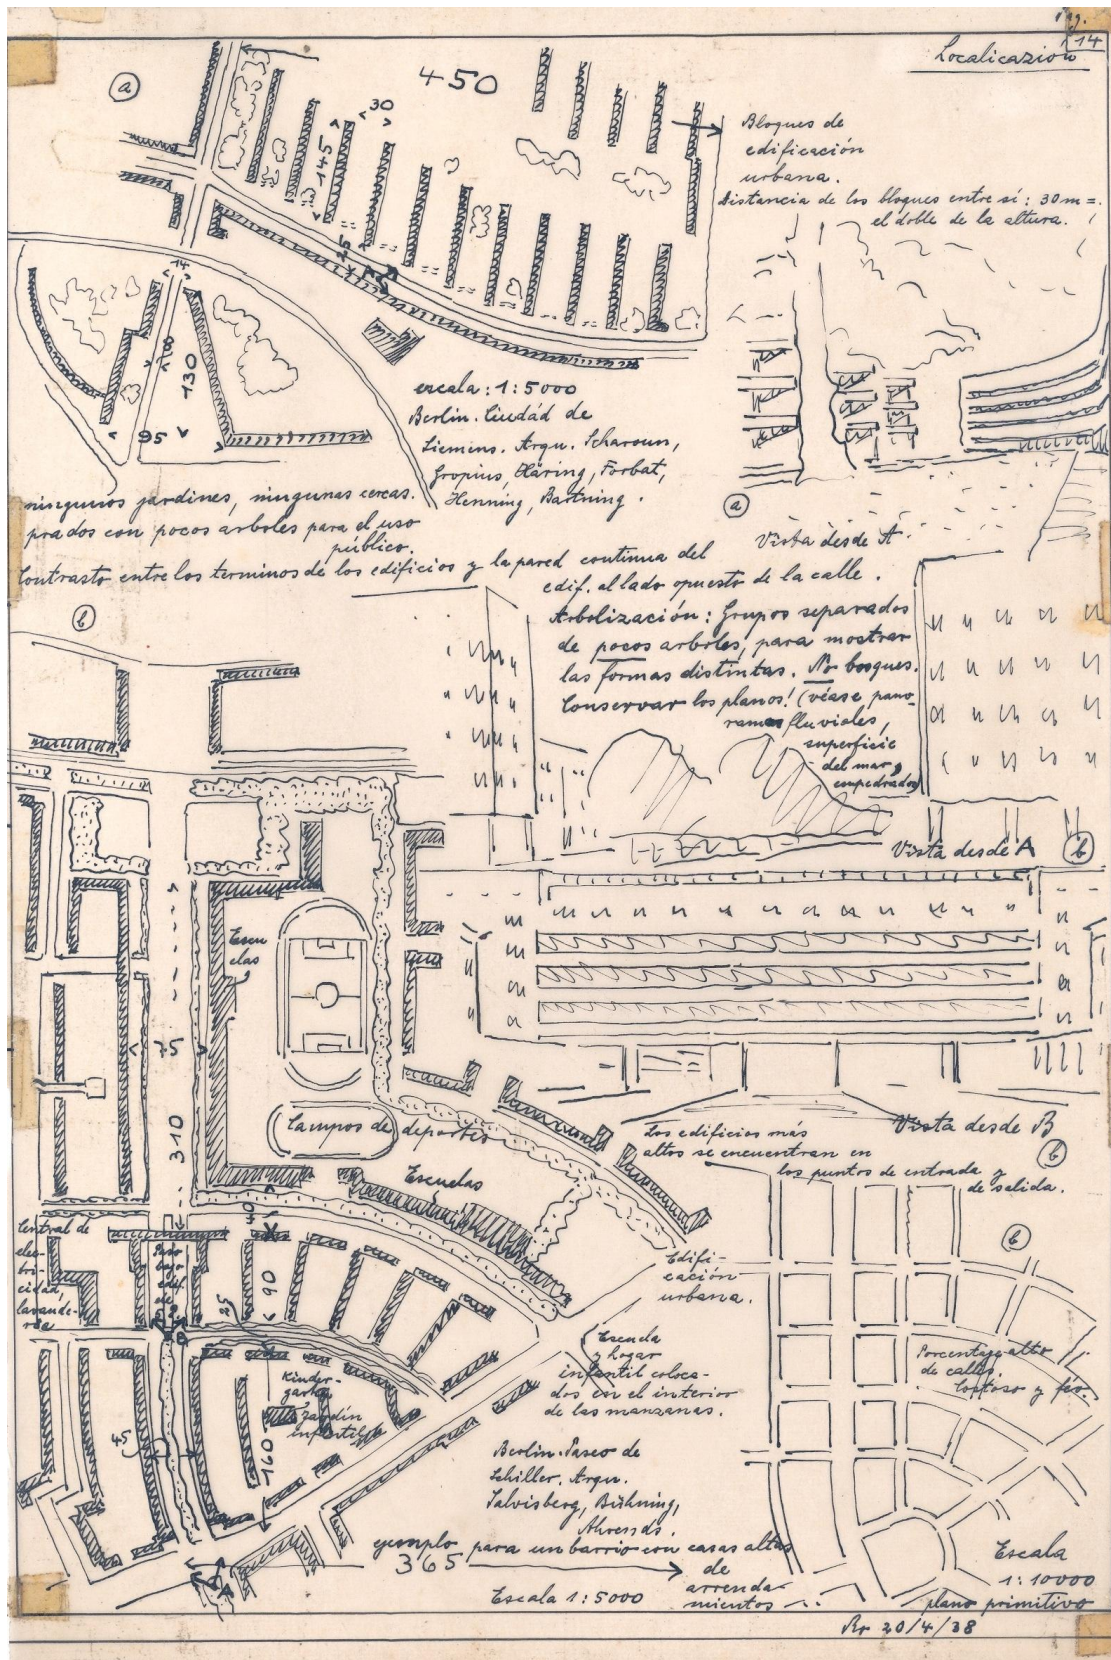 Pag.
14
Localicazión
a
450
30
145
Bloques de
edificación
urbana.
Distancia de los bloques entre sí: 30m =
el doble de la altura.
25
A
14
18
130
95
escala: 1:5000
Berlin. Ciudád de
Siemens. Arqu. Scharoun,
Gropius, Häring, Forbat,
Henning, Bartning.
ningunos jardines, ningunas cercas.
prados con pocos arboles para el uso
público.
Contrasto entre los terminos de los edificios y la pared continua del
edif. al lado opuesto de la calle.
a
Vista desde A.
b
Arbolización: Grupos separados
de pocos arboles, para mostrar
las formas distintas. No bosques.
Conservar los planos! (véase pano-
ramas fluviales,
superficie
del mar y
empedrados
Vista desde A
b
Escu
elas
75
310
Campos de deportes
Escuelas
Vista desde B
b
Los edificios más
altos se encuentran en
los puntos de entrada y
de salida.
Central de
elec-
tri-
cidad,
lavande-
ria
Paso
bajo
edif.
de
B
40
90
25
Edifi-
cación
urbana.
b
Escuela
y hogar
infantil coloca-
dos en el interior
de las manzanas.
Porcentaje alto
de calles.
Costoso y feo.
Kinder-
garten
Jardin
infantil
45
160
Berlin. Paseo de
Schiller. Arqu.
Salvisberg, Bühning,
Ahrends.
ejemplo para un barrio con casas altas
de
arrenda-
mientos
365
A
Escala 1:5000
Escala
1:10000
plano primitivo
Br 20/4/38